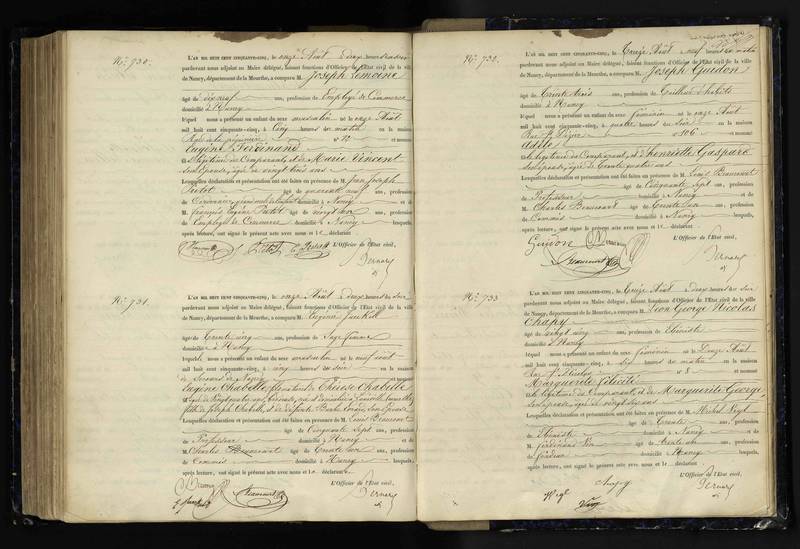 No. 730.
L'AN MIL HUIT CENT CINQUANTE-CINQ, le onze Août Deux heures du soir
pardevant nous adjoint au Maire délégué, faisant fonctions d'Officier de l'Etat civil de la ville
de Nancy, département de la Meurthe, a comparu M. Joseph Lemoine
âgé de ans, profession de Employé de Commerce
domicilié à Nancy
lequel nous a présenté un enfant du sexe masculin né le onze Août
mil huit cent cinquante-cinq, à cinq heures du matin en la maison
Rue de la pépinière n° 12 et nommé
Eugène Ferdinand
fils légitime du Comparant et de Marie Vincent
son épouse, âgée de vingt trois ans
Lesquelles déclaration et présentation ont été faites en présence de M. Jean Joseph
âgé de quarante neuf ans, profession
de domicilié à Nancy et de
M. François Eugène âgé de vingt un ans, profession
de Employé de Commerce domicilié à Nancy lesquels,
après lecture, ont signé le présent acte avec nous et le déclarant
L'Officier de l'Etat civil,
No. 731.
L'AN MIL HUIT CENT CINQUANTE-CINQ, le onze Août Deux heures du soir
pardevant nous adjoint au Maire délégué, faisant fonctions d'Officier de l'Etat civil de la ville
de Nancy, département de la Meurthe, a comparu M. Eugénie
âgée de Trente cinq ans, profession de Sage femme
domiciliée à Nancy
laquelle nous a présenté un enfant du sexe masculin né le neuf août
mil huit cent cinquante-cinq, à cinq heures du soir en la maison
de Secours de Nancy et nommé
Eugène Chabotte fils naturel de Thérèse Chabotte
âgée de vingt quatre ans,
fille de Joseph Chabotte, et de défunte
Lesquelles déclaration et présentation ont été faites en présence de M. Louis Beaucourt
âgé de Cinquante Sept ans, profession
de Professeur domicilié à Nancy et de
M. Charles Beaucourt âgé de Trente un ans, profession
de Commis domicilié à Nancy lesquels,
après lecture, ont signé le présent acte avec nous et la déclarante
L'Officier de l'Etat civil,
No. 732.
L'AN MIL HUIT CENT CINQUANTE-CINQ, le Treize Août neuf heures du matin
pardevant nous adjoint au Maire délégué, faisant fonctions d'Officier de l'Etat civil de la ville
de Nancy, département de la Meurthe, a comparu M. Joseph Guidon
âgé de Trente trois ans, profession de Tailleur d'habits
domicilié à Nancy
lequel nous a présenté un enfant du sexe féminin né le onze Août
mil huit cent cinquante-cinq, à quatre heures du soir en la maison
Rue St Dizier n° 106 et nommé
Adèle
fille légitime du Comparant, et d'henriette Gaspard
son épouse, âgée de Trente quatre ans
Lesquelles déclaration et présentation ont été faites en présence de M. Louis Beaucourt
âgé de Cinquante Sept ans, profession
de Professeur domicilié à Nancy et de
M. Charles Beaucourt âgé de Trente un ans, profession
de Commis domicilié à Nancy lesquels,
après lecture, ont signé le présent acte avec nous et le déclarant
Guidon
L'Officier de l'Etat civil,
Beaucourt
No. 733
L'AN MIL HUIT CENT CINQUANTE-CINQ, le Treize Août Deux heures du soir
pardevant nous adjoint au Maire délégué, faisant fonctions d'Officier de l'Etat civil de la ville
de Nancy, département de la Meurthe, a comparu M. Léon George Nicolas
Chapy
âgé de vingt cinq ans, profession de Ebéniste
domicilié à Nancy
lequel nous a présenté un enfant du sexe féminin né le Douze Août
mil huit cent cinquante-cinq, à Sept heures du matin en la maison
Rue St Nicolas n° 8 et nommé
Marguerite Félicité
fille légitime du Comparant et de Marguerite George,
son épouse, âgée de vingt six ans
Lesquelles déclaration et présentation ont été faites en présence de M. Michel Weyl
âgé de Trente ans, profession
de Ebéniste domicilié à Nancy et de
M. Ferdinand âgé de Trente six ans, profession
de domicilié à Nancy lesquels,
après lecture, ont signé le présent acte avec nous et le déclarant
L'Officier de l'Etat civil,
Chapy
Weyl